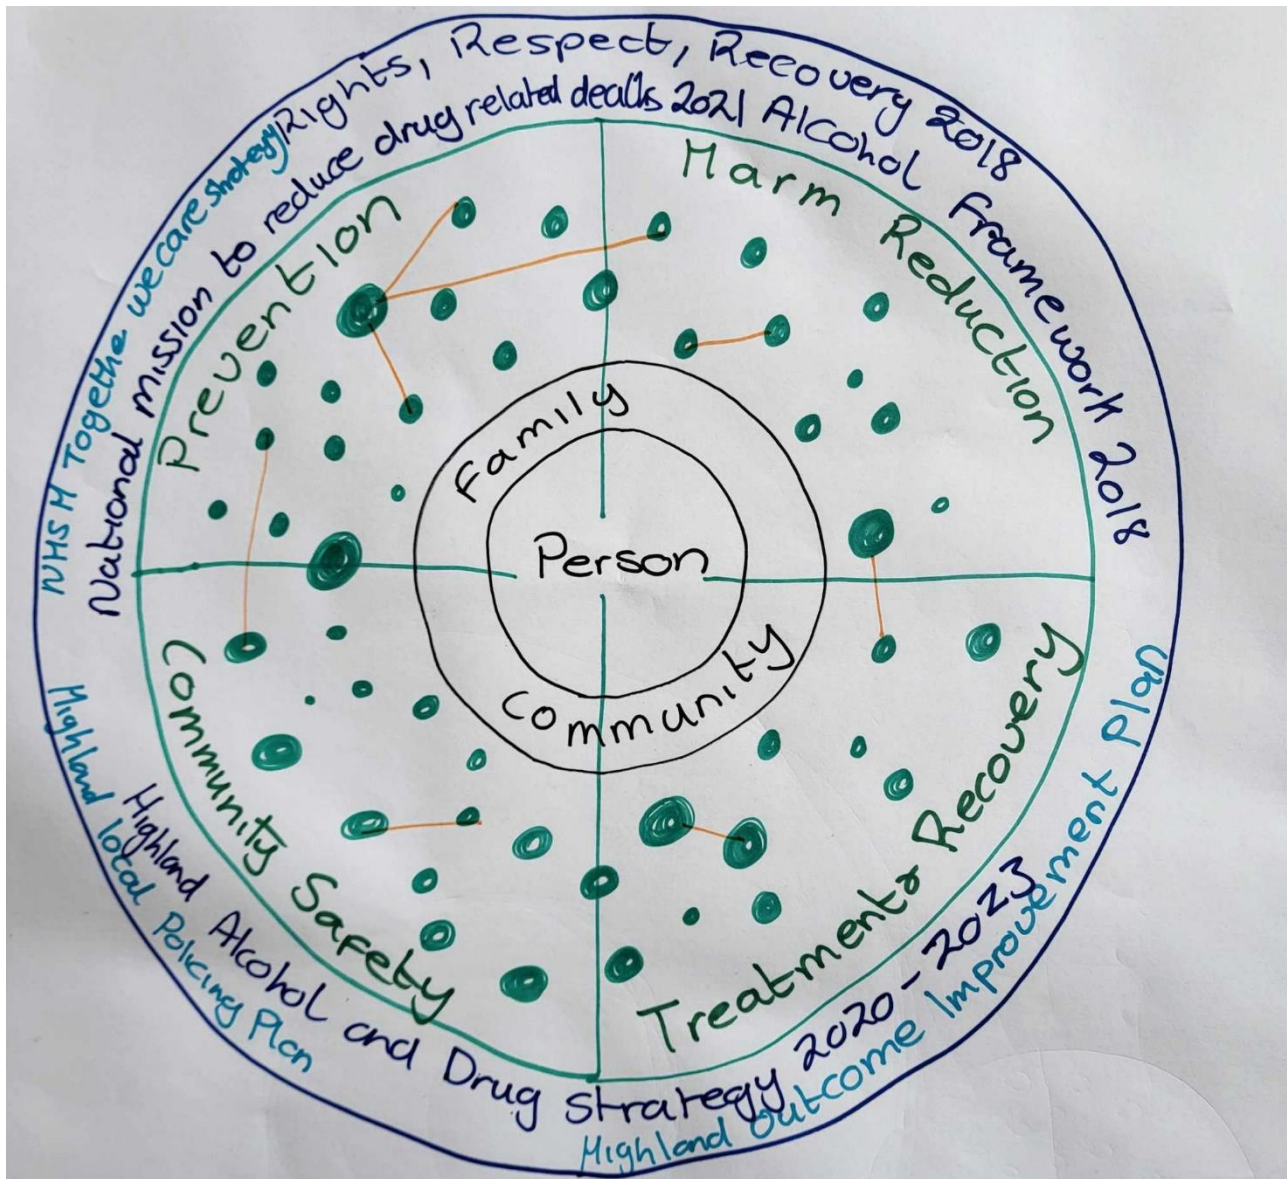 Rights, Respect, Recovery 2018
National mission to reduce drug related deaths 2021 Alcohol Framework 2018
NHSH Togethe we care strategy
Prevention
Harm Reduction
Family
Person
Community
Community Safety
Treatment & Recovery
Highland Alcohol and Drug Strategy 2020-2023
Highland local Policing Plan
Highland Outcome Improvement Plan